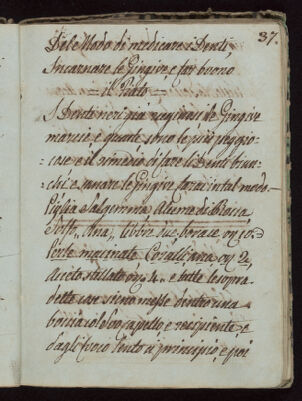 37.
Del Modo di medicare i Denti,
Incarnare le Gengive, e far buono
= il Fiato =
I Denti neri più cagionati le Gengive
marcie, e quante sono le più peggio-
-se e il rimedio di fare li Denti bian-
-chi e sanare le Gengive farai in tal modo.
Piglia Salgemma Alume di Rocca
Solfo, Ana, libre due Borace on 10.
Perle macinate Coralliana on 2,
Aceto stillato on 4. e tutte le sopra
dette cose siano messe dentro una
boccia col suo capello e recipiente, e
dagli fuoco lento a principio, e poi